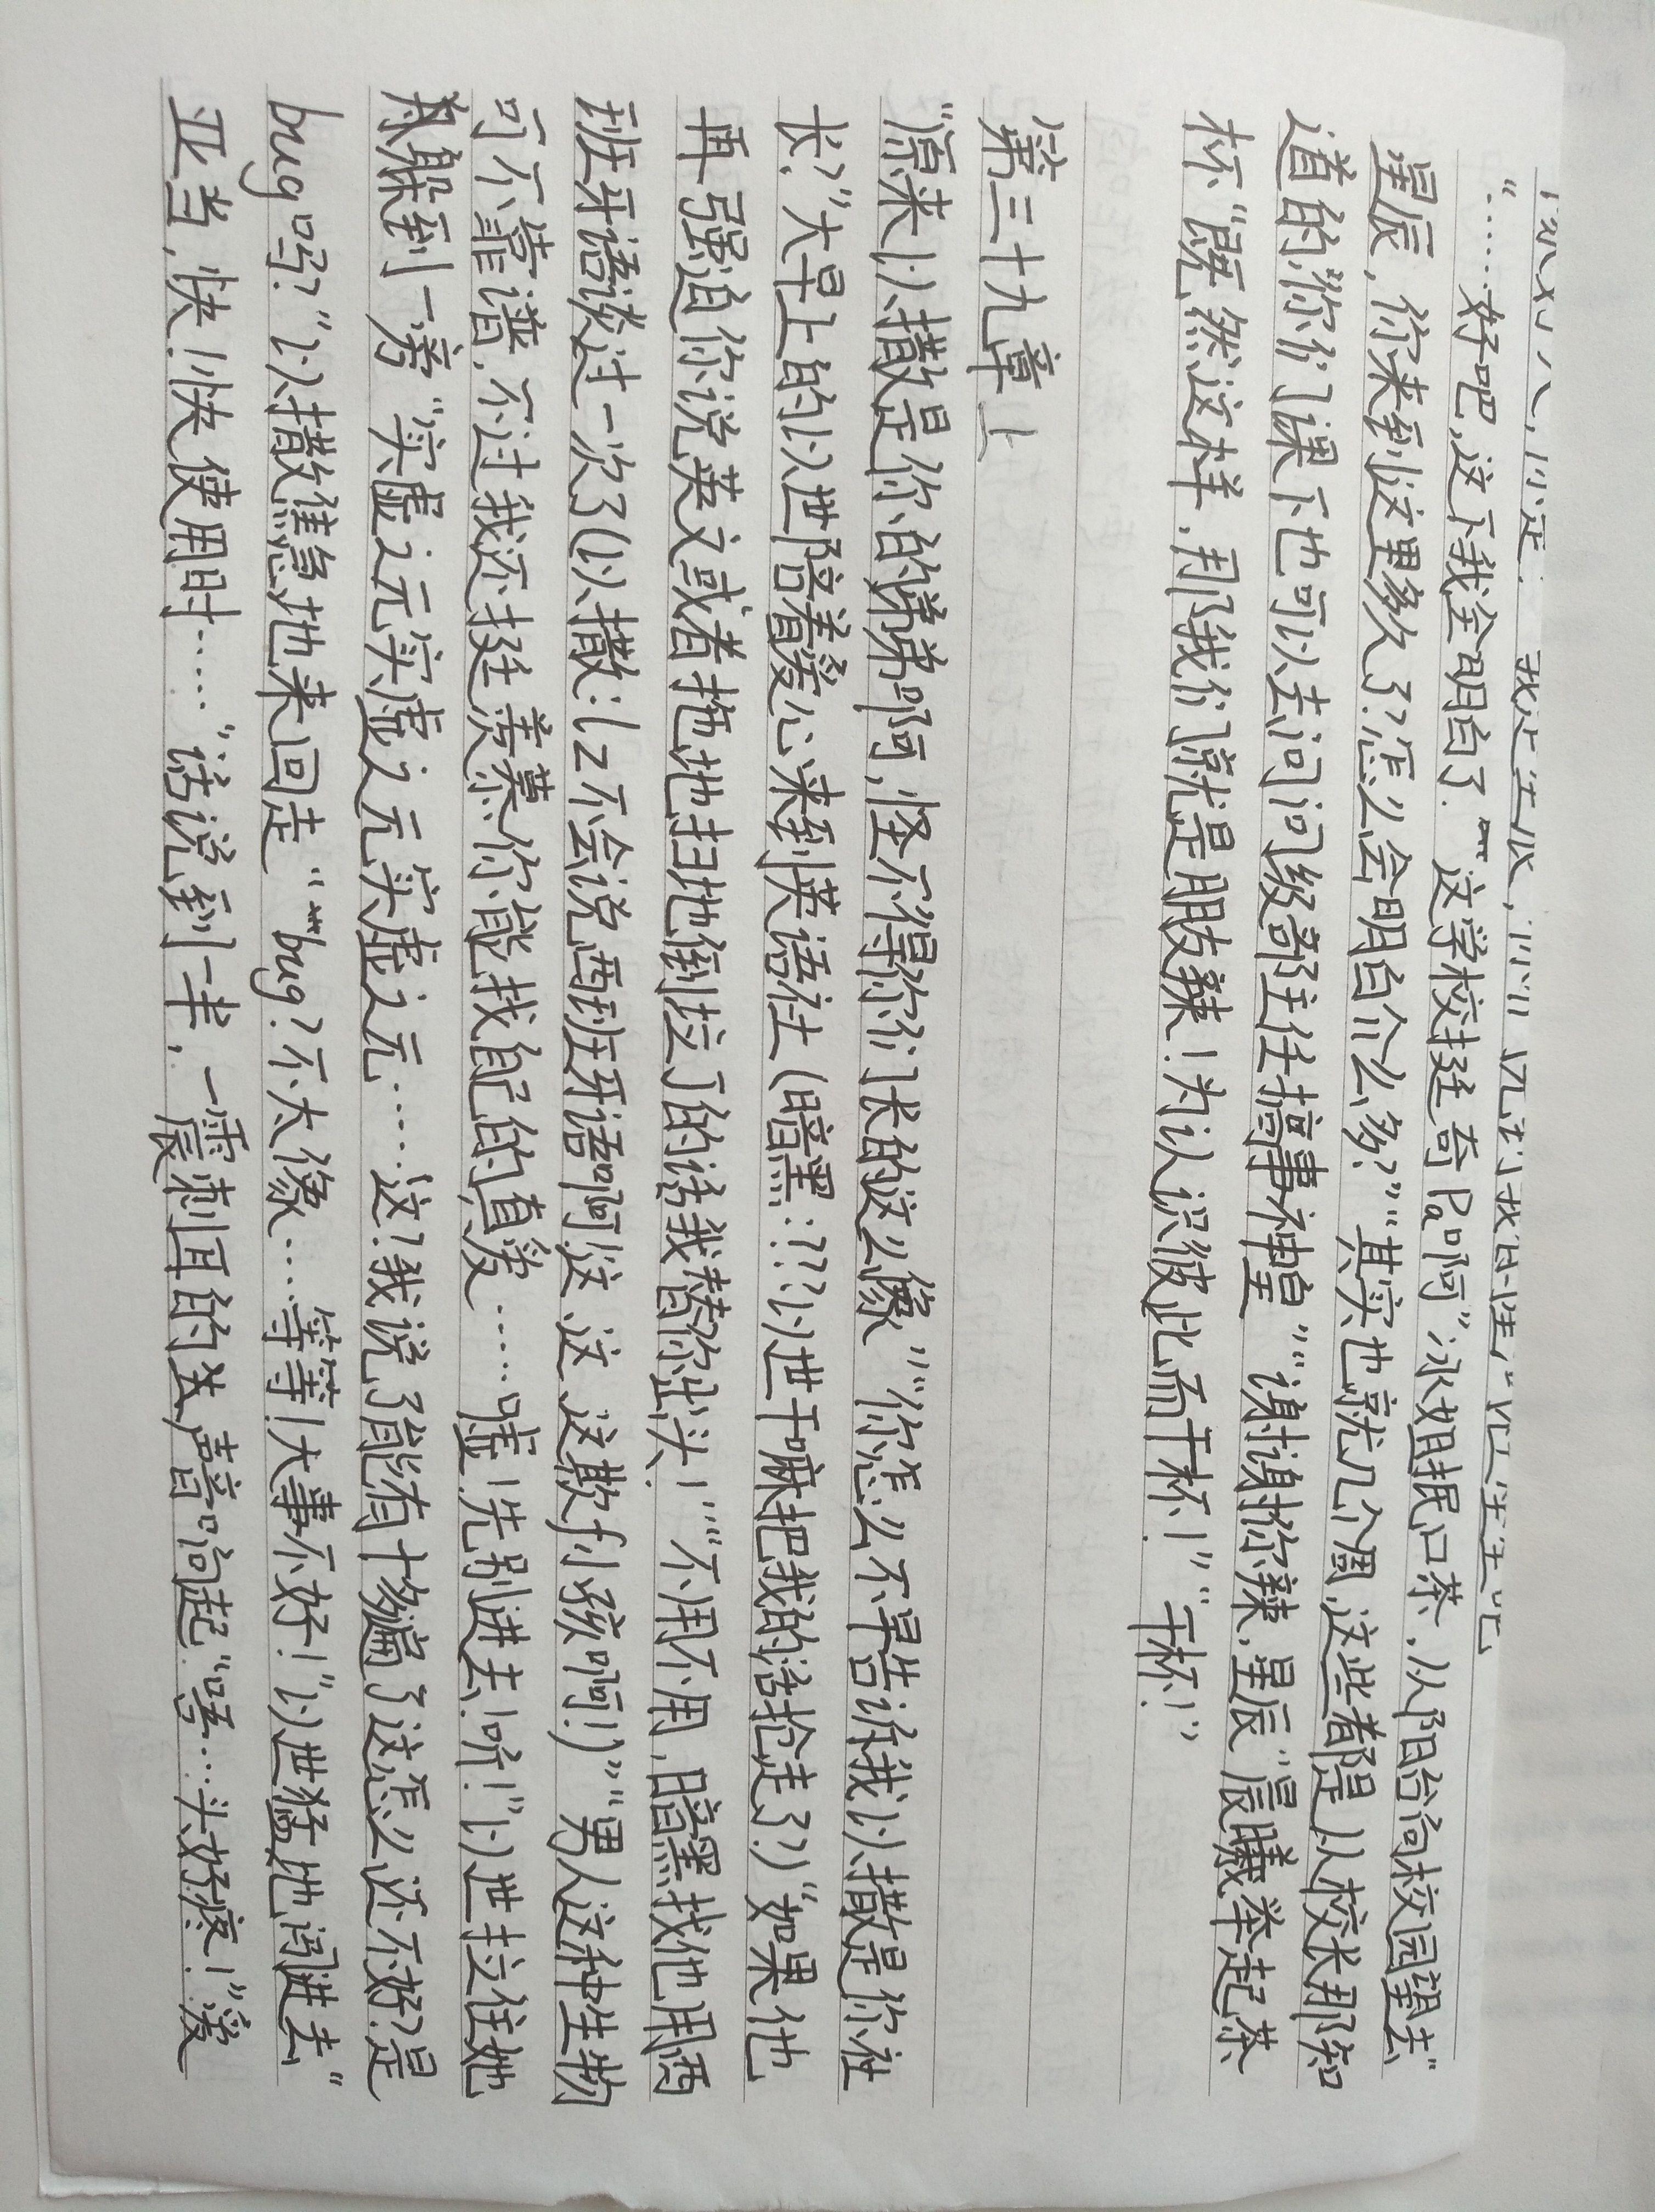 “……好吧,这下我全明白了.”“这学校挺奇pa啊”冰姐抿口茶,从阳台向校园望去“
星辰,你来到这里多久了?怎么会明白介么多?”“其实也就几个周,这些都是从校长那知
道的,你们课下也可以去问问级部主任搞事神皇”“谢谢你辣,星辰”晨曦举起茶
杯“既然这样,那我们就是朋友辣!为认识彼此而干杯!”“干杯!”
第三十九章 上
“原来以撒是你的弟弟啊,怪不得你们长的这么像”“你怎么不早告诉我以撒是你社
长?”大早上的以泄陪着爱心来到英语社(暗黑:???以泄干嘛把我的活抢走了?)“如果他
再强迫你说英文或者拖地扫地倒垃圾的话我替你出头!”“不用不用,暗黑找他用西
班牙语谈过一次了(以撒:LZ不会说西班牙语啊这 这 这欺fu小孩啊!)”“男人这种生物
可不靠谱,不过我还挺羡慕你能找自己的真爱……嘘!先别进去!听!”以泄拉住她
躲到一旁“实虚之元实虚之元实虚之元……这?我说了能有十多遍了这怎么还不好?是
bug吗?”以撒焦急地来回走“bug?不太像……等等!大事不好!”以泄猛地闯进去“
亚当,快!快使用时……”话说到一半,一震刺耳的声音响起“唔……头好疼!”爱